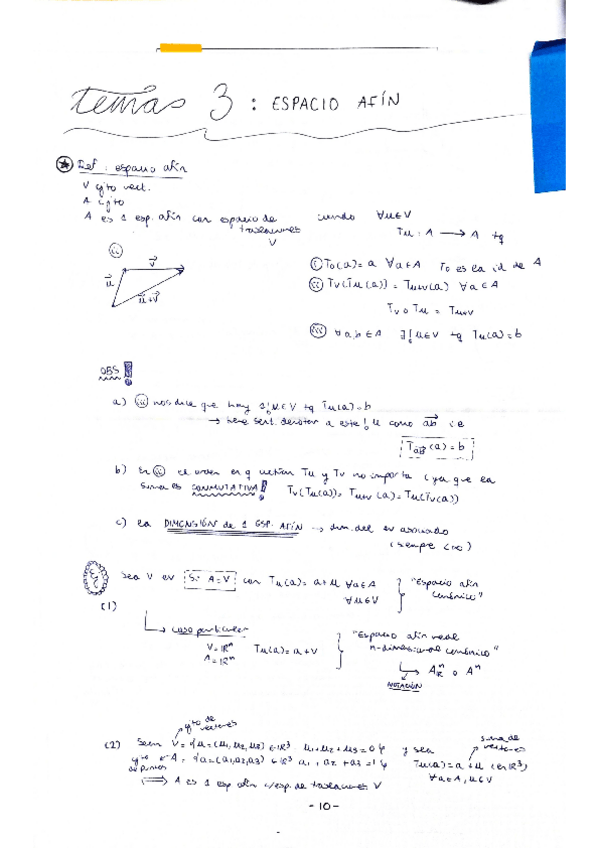 temas 3 : ESPACIO AFÍN
Def : espacio afín
V cjto vect.
A cjto
A es 1 esp. afín con espacio de traslaciones V cuando ∀u∈V
Tu : A → A tq
(ii)
u v u+v
(i) T0(a) = a ∀a∈A T0 es la id de A
(ii) Tv(Tu(a)) = Tu+v(a) ∀a∈A
Tv o Tu = Tu+v
(iii) ∀a,b∈A ∃!u∈V tq Tu(a)=b
OBS !
a) nos dice que hay 1! u∈V tq Tu(a)=b
→ tiene sent. denotar a este !u como ab i.e
Tab(a) = b
b) En (ii) el orden en q actúan Tu y Tv no importa (ya que la
suma es CONMUTATIVA! Tv(Tu(a)) = Tu+v(a) = Tu(Tv(a))
c) la DIMENSIÓN de 1 ESP. AFÍN → dim. del ev asociado
(siempre <∞)
(1) Sea V ev Si A=V con Tu(a) = a+u ∀a∈A ∀u∈V "Espacio afín canónico"
caso particular
V=ℝⁿ
A=ℝⁿ
Tu(a) = a+v
"Espacio afín real
n-dimensional canónico"
→ Aⁿℝ o Aⁿ
NOTACIÓN
cjto de vectores
suma de vectores
(2) Sean V = {u=(u1,u2,u3)∈ℝ³ : u1+u2+u3=0} y sea
cjto de puntos A = {a=(a1,a2,a3)∈ℝ³ a1+a2+a3=1} Tu(a) = a+u (en ℝ³)
∀a∈A, u∈V
⟹ A es 1 esp afín c/esp. de traslaciones V
- 10 -